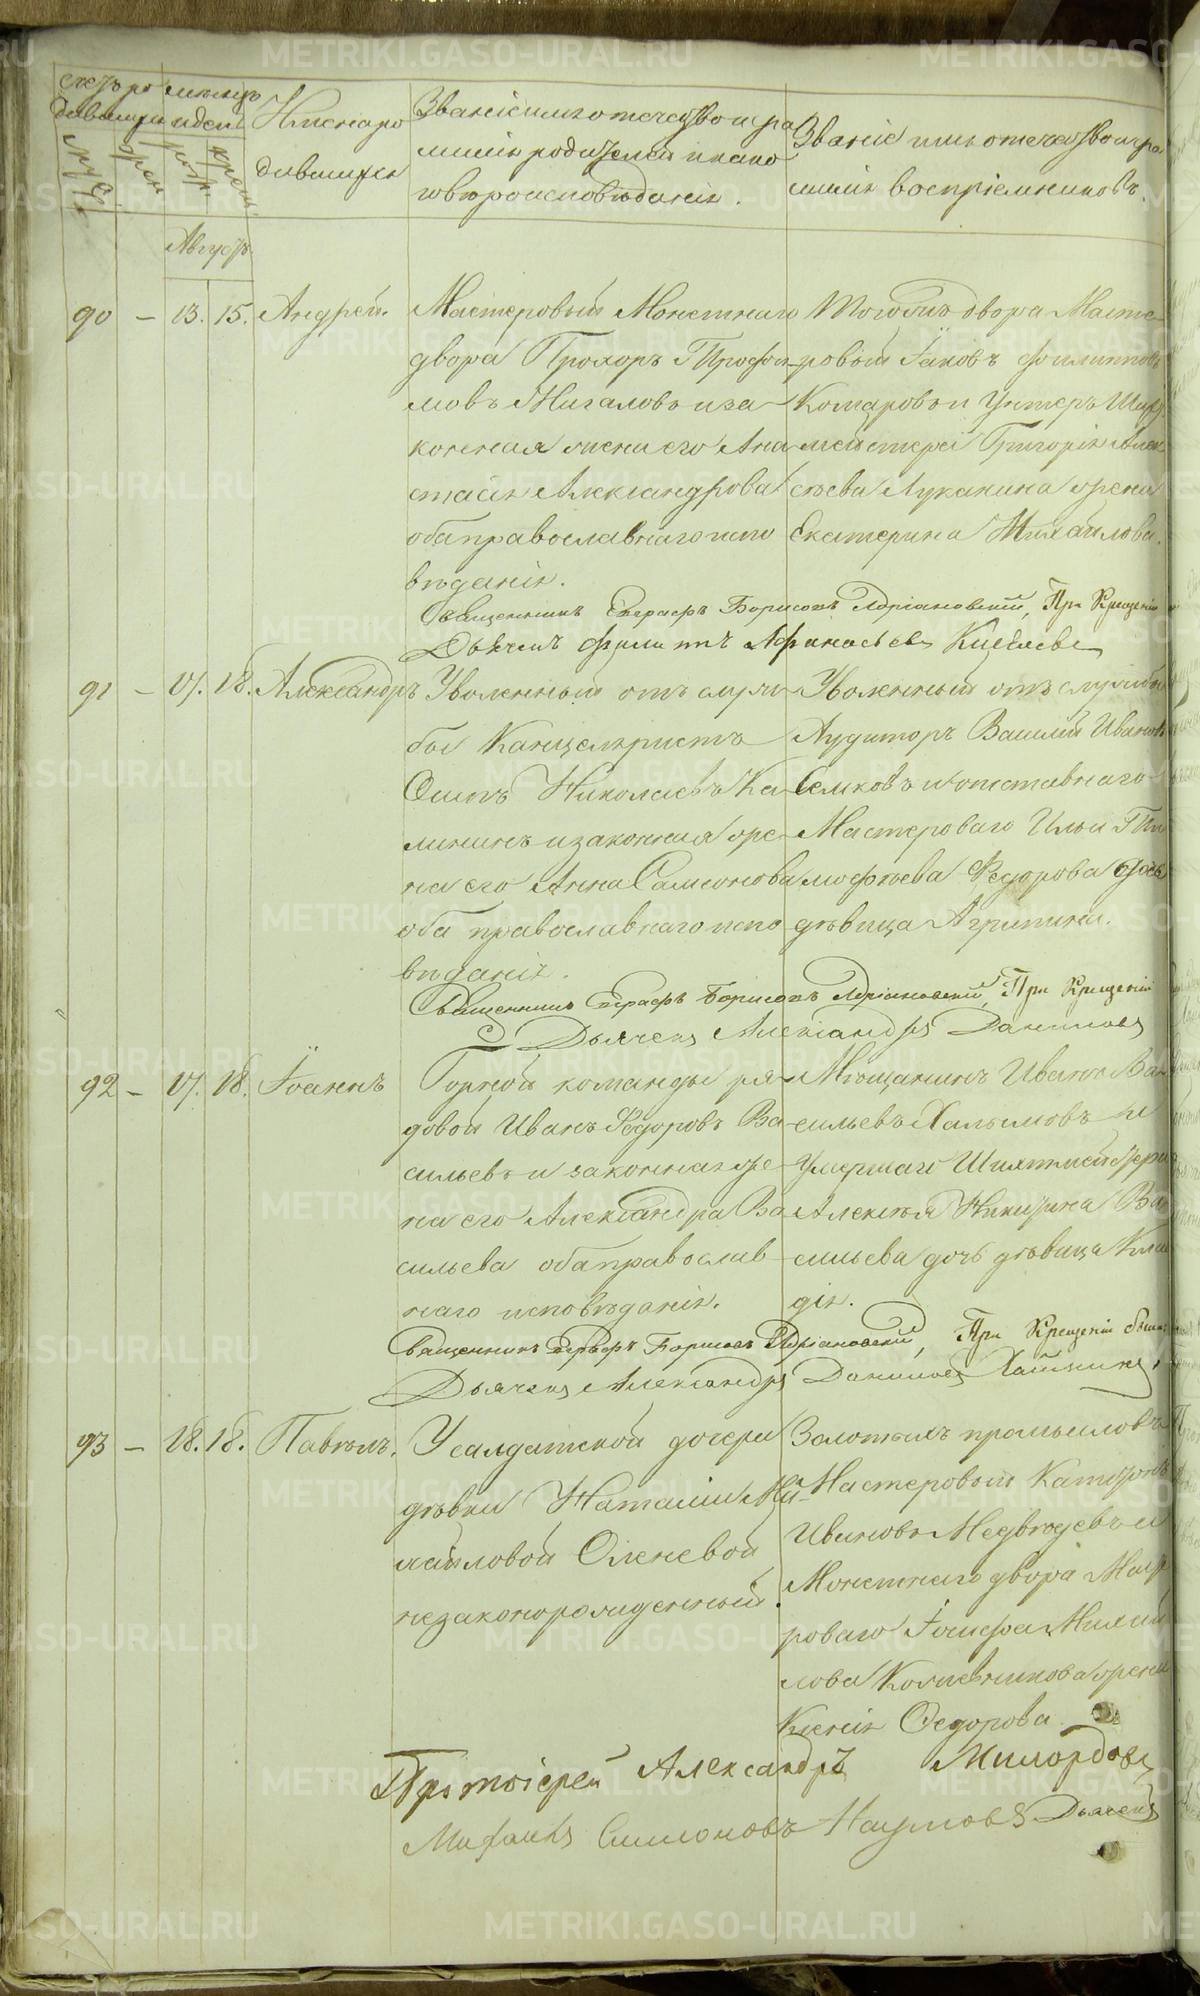 Счетъ ро
дившихся
Муж:
жен:
Мѣсяцъ
и день
рожд:
крещ:
Имена ро
дившихся
Званіе имя отечество и фа
милія родителей и како
го вѣроисповѣданія.
Званіе имя отечество и фа
милія воспріемниковъ.
Августъ
90 — 13. 15. Андрей.
Мастеровый Монетнаго
двора Прохоръ Трофи
мовъ Жигаловъ и за
конная жена его Ана
стасія Александрова
оба православнаго испо
вѣданія.
Тогожъ двора Масте
ровый Іаковъ Филиппов
Комаровъ и Унтеръ Шихт
мейстера Григорія Алек
сѣева Луканина жена
Екатерина Михайлова.
Священникъ Евграфъ Борисовъ Адріановскій, При Крещеніи
Дьячекъ Филиппъ Афанасьевъ
91 — 17. 18. Александръ
Уволенный отъ служ
бы Канцеляристъ
Осипъ Николаевъ Ка
лининъ и законная же
на его Анна Самсонова
оба православнаго испо
вѣданія.
Уволенный отъ службы
Аудиторъ Василій Иванов
Семковъ и отставнаго
Мастероваго Ильи Ти
мофѣева Федорова дочь
дѣвица Агрипина.
Священникъ Евграфъ Борисовъ Адріановскій, При Крещеніи
Дьячекъ Александръ Даниловъ
92 — 17. 18. Іоаннъ
Горной команды ря
довой Иванъ Федоровъ Ва
сильевъ и законная же
на его Александра Ва
сильева оба православ
наго исповѣданія.
Мѣщанинъ Иванъ Ва
сильевъ Халымовъ и
Умершаго Шихтмейстера
Алексѣя Никитина Ва
сильева дочь дѣвица Кла
дія.
Священникъ Евграфъ Борисовъ Адріановскій, При Крещеніи былъ
Дьячекъ Александръ Даниловъ
93 — 18. 18. Павелъ.
У салдатской дочери
дѣвки Наталіи Ми
хайловой Оленевой
незаконорожденный.
Золотыхъ промысловъ
Мастеровый
Ивановъ Медвѣдевъ и
Монетнаго двора Маст
роваго Іосифа Михай
лова Колесникова жена
Ксенія Федорова
Протоіерей Александръ Милордовъ
Михаилъ Симоновъ Наумовъ Дьячекъ